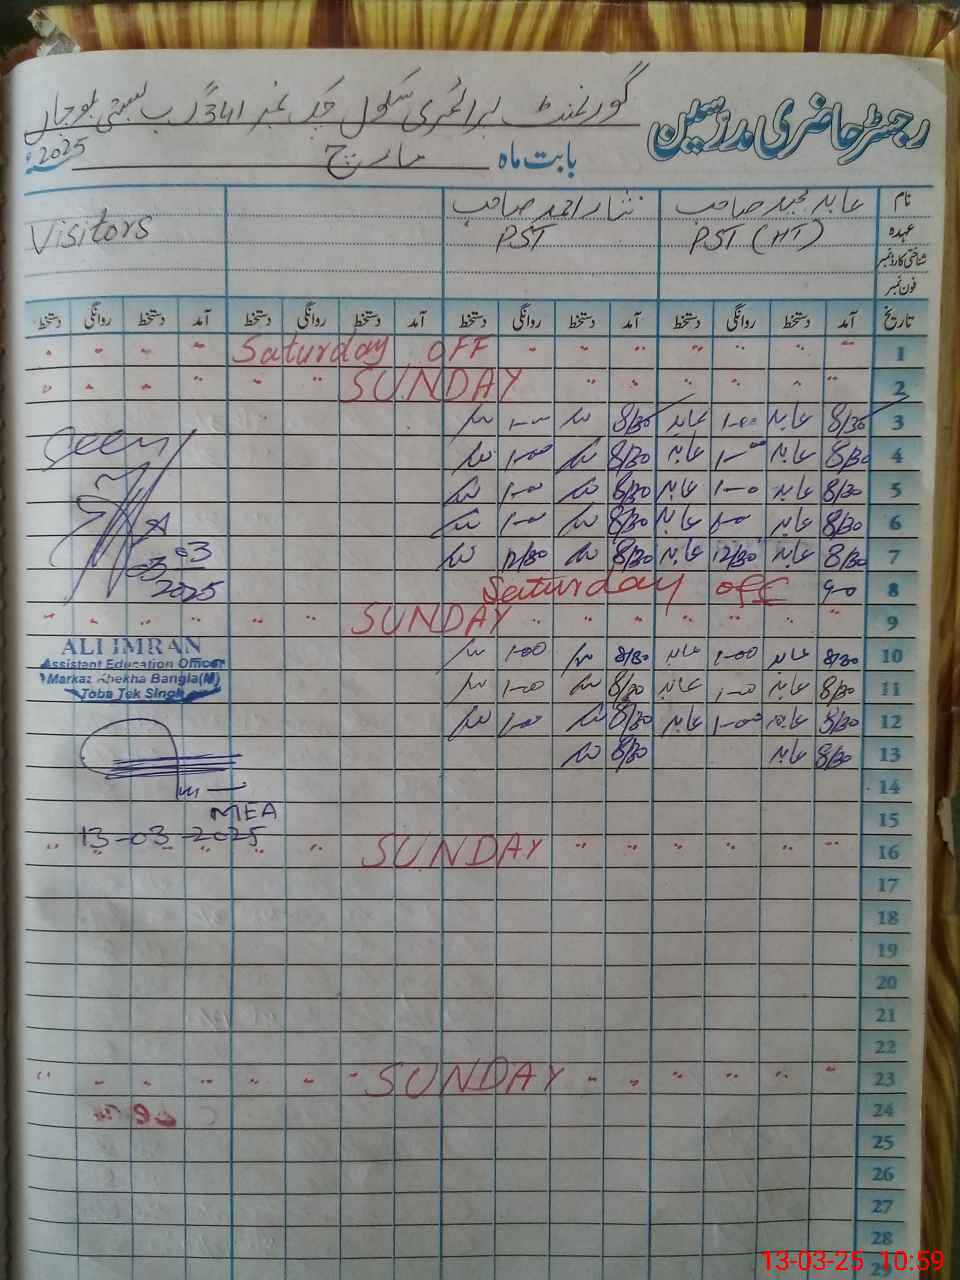 رجسٹر حاضری مدرسین
گورنمنٹ پرائمری سکول چک نمبر 341 گ ب بستی بلوچاں
بابت ماہ مارچ 2025
نام عابد مجید صاحب نثار احمد صاحب
عہدہ PST (HT) PST Visitors
شناختی کارڈ نمبر
فون نمبر
تاریخ آمد دستخط روانگی دستخط آمد دستخط روانگی دستخط آمد دستخط روانگی دستخط آمد دستخط روانگی دستخط
1 Saturday OFF
2 SUNDAY
3 8/30 عابد 1-00 عابد 8/30 1-00
4 8/30 عابد 1-00 عابد 8/30 1-00
5 8/30 عابد 1-00 عابد 8/30 1-00
6 8/30 عابد 1-00 عابد 8/30 1-00
7 8/30 عابد 12/30 عابد 8/30 12/30
8 Saturday off
9 SUNDAY
10 8/30 عابد 1-00 عابد 8/30 1-00
11 8/30 عابد 1-00 عابد 8/30 1-00
12 8/30 عابد 1-00 عابد 8/30 1-00
13 8/30 عابد 8/30
14
15
16 SUNDAY
17
18
19
20
21
22
23 SUNDAY
24
25
26
27
28
29
Seen
03
03
2025
ALI IMRAN
Assistant Education Officer
Markaz Khekha Bangla(M)
Toba Tek Singh
MEA
13-03-2025
13-03-25 10:59